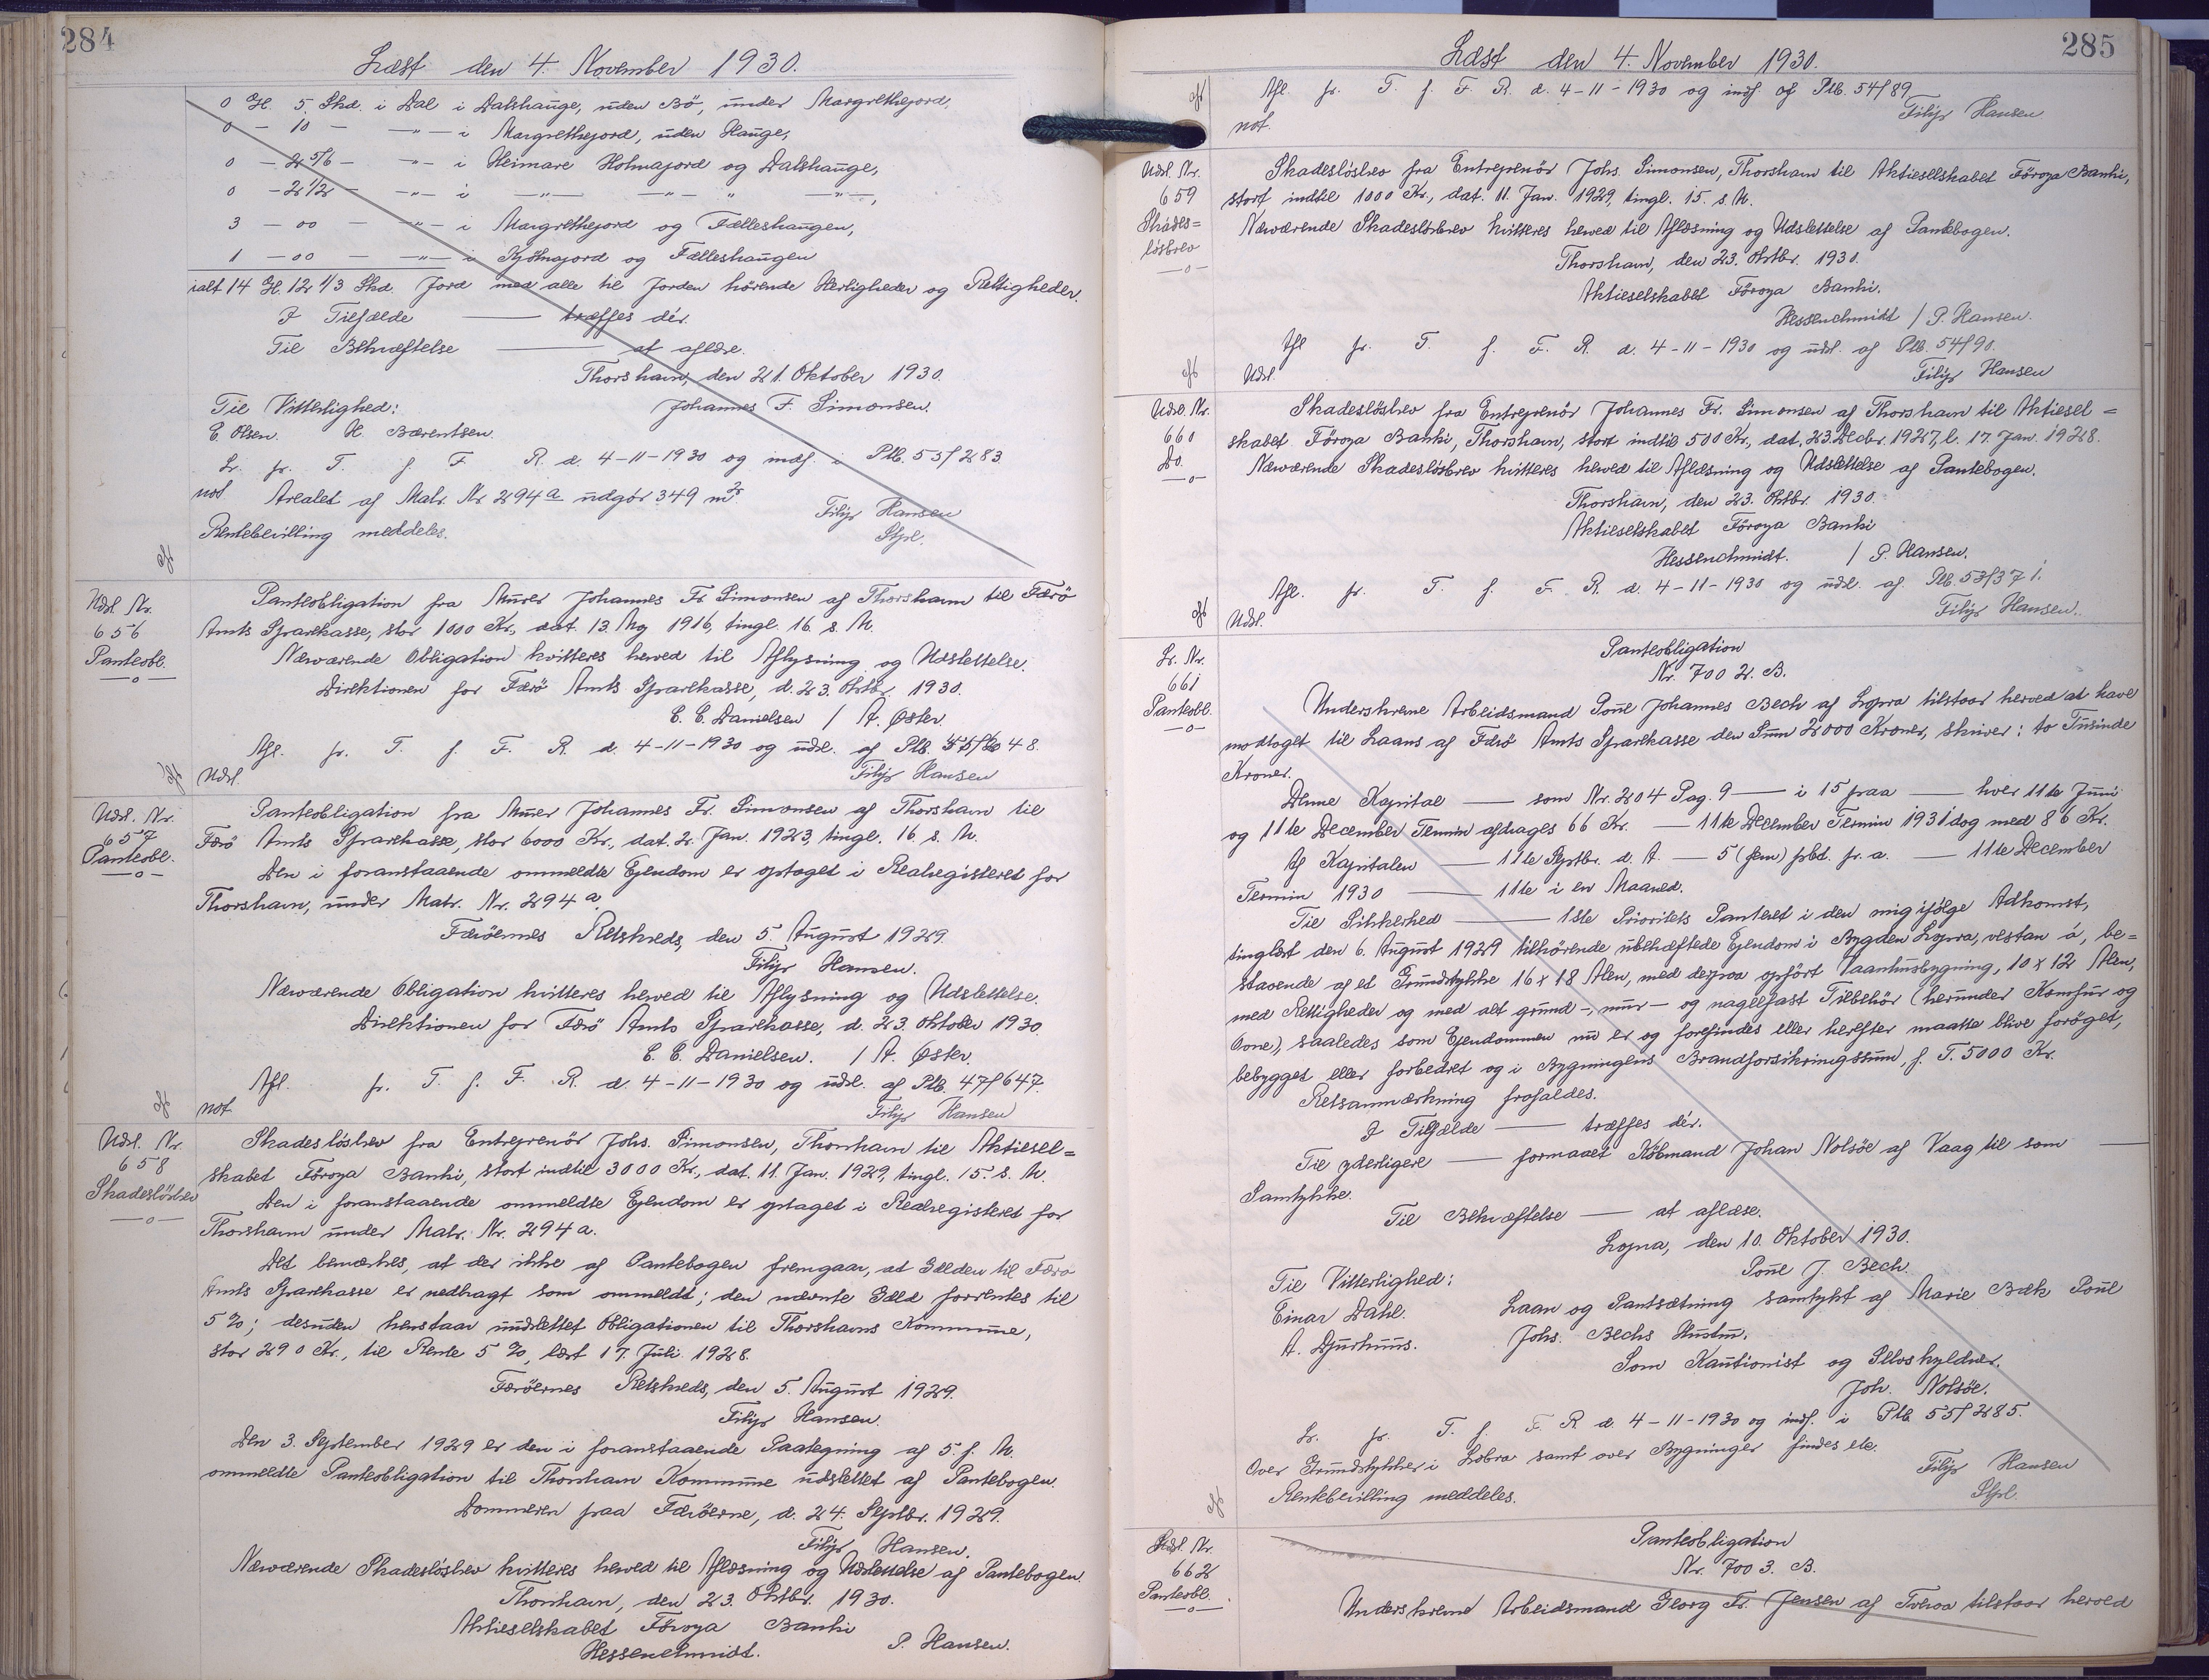 284
Læst den 4. November 1930.
0 G. 5 Skd. i Dal i Dalshauge, uden Bö, under Margrethejord,
0 - 10 - -"- i Margrethejord, uden Hauge,
0 - 2 5/6 - -"- i Heimare Holmajord og Dalshauge,
0 - 2 1/2 - -"- i -"- -"- " -"-,
3 - 00 - -"- i Margrethejord og Fælleshaugen,
1 - 00 - -"- i Kjölnajord og Fælleshaugen
ialt 14 G. 12 1/3 Skd. Jord med alle til Jorden hørende Herligheder og Rettigheder.
I Tilfælde — træffes dér.
Til Bekræftelse — at aflæse.
Thorshavn, den 21. Oktober 1930.
Til Vitterlighed: Johannes F. Simonsen.
E. Olsen. H. Bærentsen.
Lr. fr. T. f. F. R. d. 4-11-1930 og indf. i Ptb. 53f283.
not. Arealet af Matr. Nr. 294a udgör 349 m2
Filip Hansen
Rentebevilling meddeles.
Stpl.
Udsl. Nr. 656 Panteobl. —o—
Panteobligation fra Murer Johannes Fr. Simonsen af Thorshavn til Færö
Amts Sparekasse, stor 1000 Kr., dat. 13. Maj 1916, tingl. 16. s. M.
Nærværende Obligation kvitteres herved til Aflysning og Udslettelse.
Direktionen for Færö Amts Sparekasse, d. 23. Oktbr. 1930.
E. C. Danielsen / A. Øster.
Afl. fr. T. f. F. R. d. 4-11-1930 og udsl. af Ptb. 48.
Udsl. Filip Hansen
Udsl. Nr. 657 Panteobl. —o—
Panteobligation fra Murer Johannes Fr. Simonsen af Thorshavn til
Færö Amts Sparekasse, stor 6000 Kr., dat. 2. Jan. 1923, tingl. 16. s. M.
Den i foranstaaende ommeldte Ejendom er optaget i Realregisteret for
Thorshavn, under Matr. Nr. 294a.
Færöernes Retskreds, den 5. August 1929.
Filip Hansen.
Nærværende Obligation kvitteres herved til Aflysning og Udslettelse.
Direktionen for Færö Amts Sparekasse, d. 23. Oktober 1930
E. C. Danielsen. / A. Øster.
Afl. fr. T. f. F. R. d. 4-11-1930 og udsl. af Ptb. 47f647.
not Filip Hansen
Udsl. Nr. 658 Skadeslösbrev —o—
Skadeslösbrev fra Entreprenör Johs. Simonsen, Thorshavn til Aktiesel=
skabet Föroya Banki, stort indtil 3000 Kr., dat. 11. Jan. 1929, tingl. 15. s. M.
Den i foranstaaende ommeldte Ejendom er optaget i Realregisteret for
Thorshavn under Matr. Nr. 294a.
Det bemærkes, at der ikke af Pantebogen fremgaar, at Gælden til Færö
Amts Sparekasse er nedbragt som ommeldt; den nævnte Gæld forrentes til
5%; desuden henstaar uudslettet Obligationen til Thorshavns Kommune,
stor 290 Kr., til Rente 5%, læst 17. Juli 1928.
Færöernes Retskreds, den 5. August 1929.
Filip Hansen.
Den 3. September 1929 er den i foranstaaende Paategning af 5. f. M.
ommeldte Panteobligation til Thorshavn Kommune udslettet af Pantebogen.
Dommeren paa Færöerne, d. 24. Septbr. 1929.
Filip Hansen.
Nærværende Skadeslösbrev kvitteres herved til Aflæsning og Udslettelse af Pantebogen.
Thorshavn, den 23. Oktbr. 1930.
Aktieselskabet Föroya Banki
Hessenchmidt. P. Hansen.
285
Læst den 4. November 1930.
Afl. fr. T. f. F. R. d. 4-11-1930 og indf. af Ptb. 54f89
not. Filip Hansen
Udsl. Nr. 659 Skades=lösbrev —o—
Skadeslösbrev fra Entreprenör Johs. Simonsen, Thorshavn til Aktieselskabet Föroya Banki,
stort indtil 1000 Kr., dat. 11. Jan. 1929, tingl. 15. s. M.
Nærværende Skadeslösbrev kvitteres herved til Aflæsning og Udslettelse af Pantebogen.
Thorshavn, den 23. Oktbr. 1930.
Aktieselskabet Föroya Banki.
Hessenchmidt / P. Hansen.
Afl fr. T. f. F. R. d. 4-11-1930 og udsl. af Ptb. 54f90.
Udsl. Filip Hansen
Udsl. Nr. 660 Do. —o—
Skadeslösbrev fra Entreprenör Johannes Fr. Simonsen af Thorshavn til Aktiesel=
skabet Föroya Banki, Thorshavn, stort indtil 500 Kr., dat. 23. Decbr. 1927, l. 17. Jan. 1928.
Nærværende Skadeslösbrev kvitteres herved til Aflæsning og Udslettelse af Pantebogen.
Thorshavn, den 23. Oktbr. 1930.
Aktieselskabet Föroya Banki
Hessenchmidt. / P. Hansen.
Afl. fr. T. f. F. R. d. 4-11-1930 og udsl. af Ptb. 53f371.
Udsl. Filip Hansen.
Lr. Nr. 661 Panteobl. —o—
Panteobligation
Nr. 7002. B.
Underskrevne Arbeidsmand Poul Johannes Bech af Lopra tilstaar herved at have
modtaget til Laans af Færö Amts Sparekasse den Sum 2000 Kroner, skriver: to Tusinde
Kroner.
Denne Kapital — som Nr. 204 Pag. 9 — i 15 paa — hver 11te Juni
og 11te December Termin afdrages 66 Kr. — 11te December Termin 1931 dog med 86 Kr.
Af Kapitalen — 11te Septbr. d. A. — 5 (fem) pCt. pr. a. — 11te December
Termin 1930 — 11te i en Maaned.
Til Sikkerhed — 1ste Prioritets Panteret i den mig ifølge Adkomst,
tinglæst den 6. August 1929 tilhørende ubehæftede Ejendom i Bygden Lopra, vestan á, be=
staaende af et Grundstykke 16 x 18 Alen, med derpaa opfört Vaanhusbygning, 10 x 12 Alen,
med Rettigheder og med alt grund-, mur- og nagelfast Tilbehör (herunder Komfur og
Ovne), saaledes som Ejendommen nu er og forefindes eller herefter maatte blive foröget,
bebygget eller forbedret og i Bygningens Brandforsikringssum, f. T. 5000 Kr.
Retsanmærkning frafaldes.
I Tilfælde — træffes dér.
Til yderligere — formaaet Köbmand Johan Nolsöe af Vaag til som —
Samtykke.
Til Bekræftelse — at aflæse.
Lopra, den 10. Oktober 1930.
Poul J. Bech.
Til Vitterlighed:
Einar Dahl. Laan og Pantsætning samtykt af Marie Bæk Poul
A. Djurhuus. Johs. Bechs Hustru.
Som Kautionist og Selvskyldner.
Joh. Nolsöe.
Lr. fr. T. f. F. R. d. 4-11-1930 og indf. i Ptb 55f285.
Over Grundstykker i Lobra samt over Bygninger findes etc.
Filip Hansen
Rentebevilling meddeles. Stpl.
Udsl. Nr. 662 Panteobl. —o—
Panteobligation
Nr. 7003. B.
Underskrevne Arbeidsmand Georg Fr. Jensen af Tveraa tilstaar herved